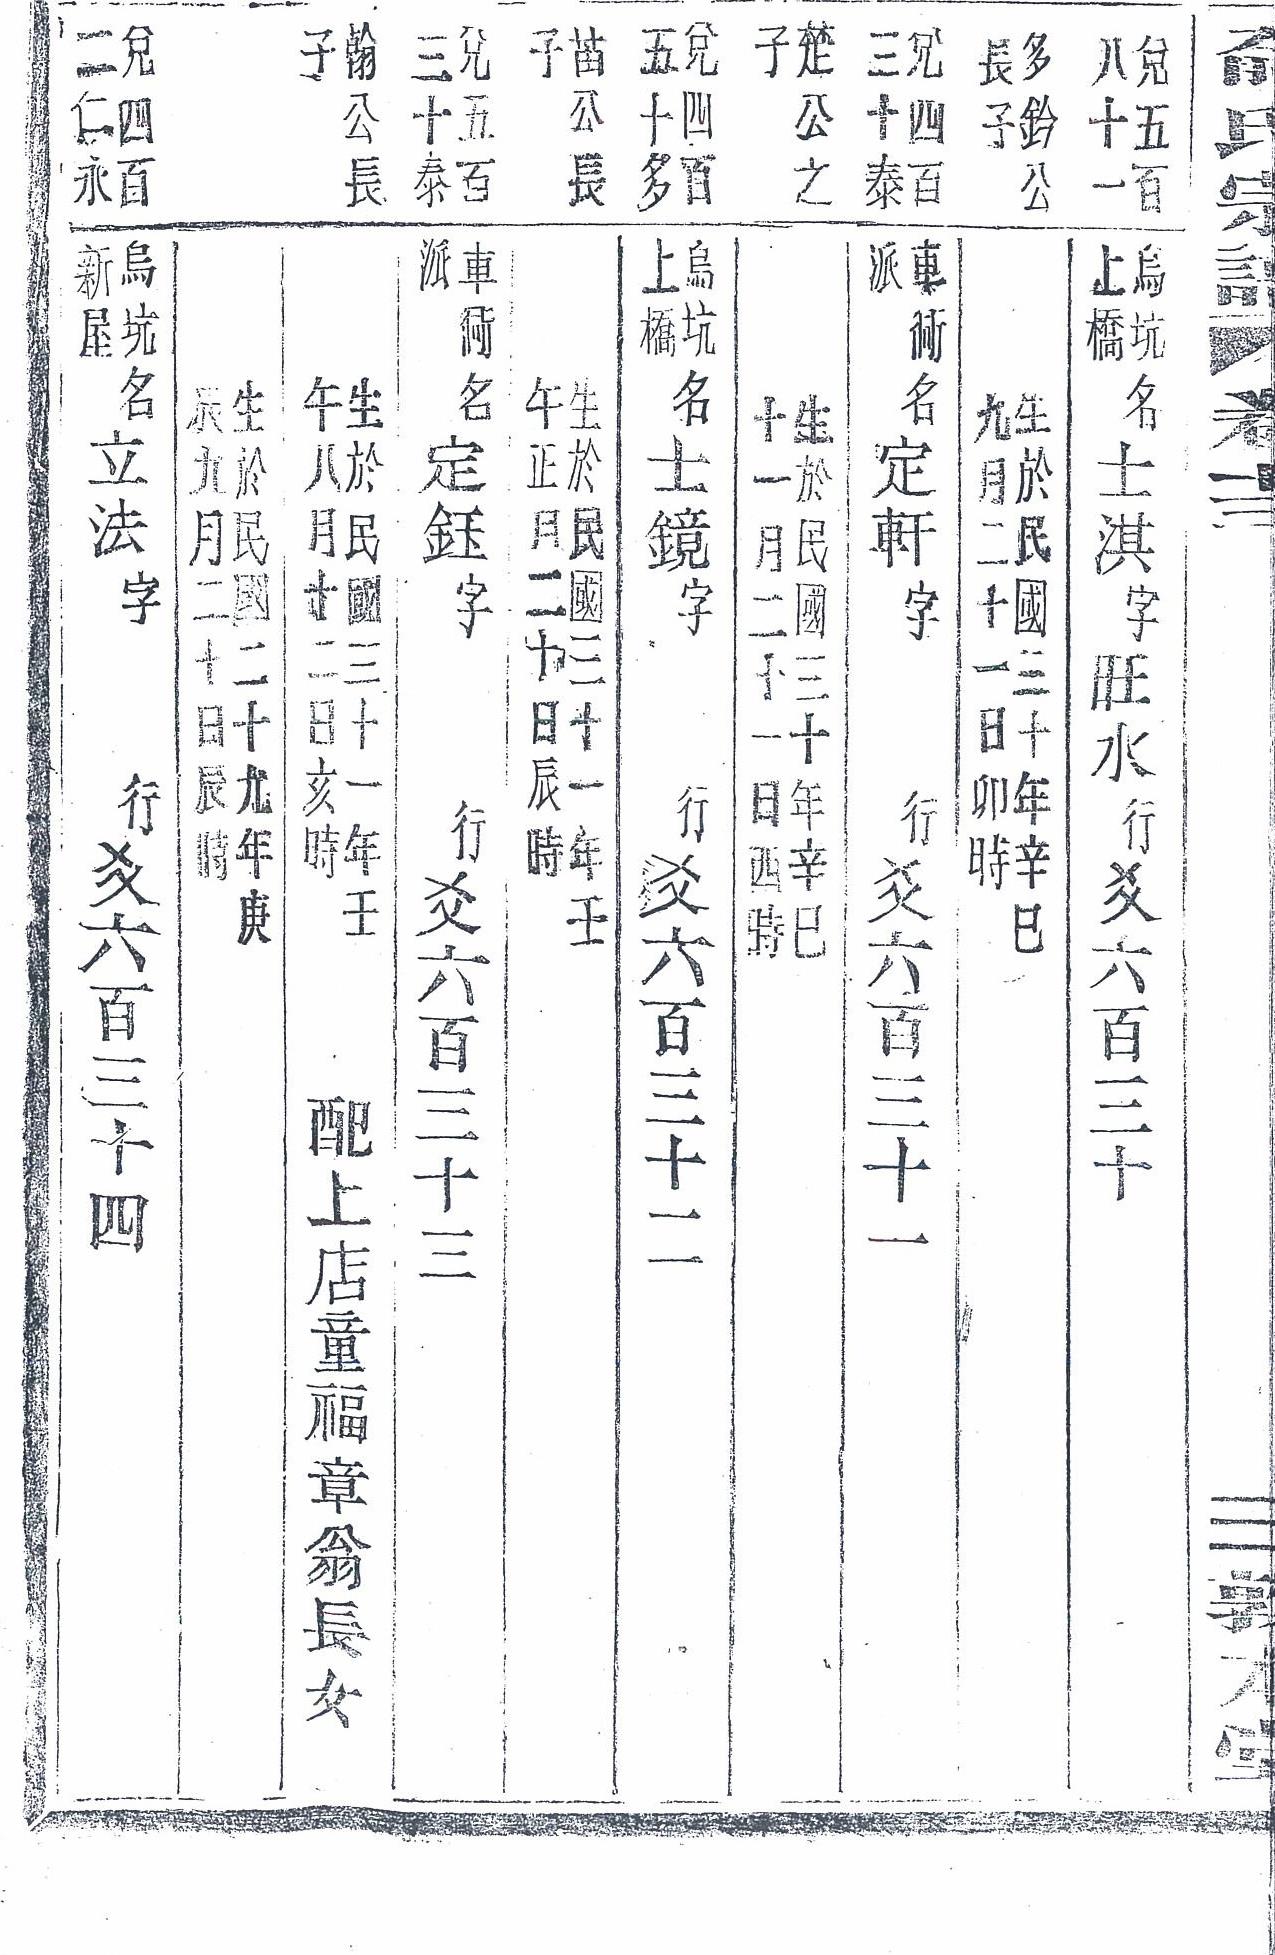 俞氏宗譜 卷十二
三 敦本堂
兌五百
八十一
多鈴公
長子
烏坑
上橋
名士淇字旺水行爻六百三十
生於民國三十年辛巳
九月二十一日卯時
兌四百
三十泰
楚公之
子
車衕
派
名定軒字 行爻六百三十一
生於民國三十年辛巳
十一月二十一日酉時
兌四百
五十多
苗公長
子
烏坑
上橋
名士鏡字 行爻六百三十二
生於民國三十一年壬
午正月二十日辰時
兌五百
三十泰
翰公長
子
車衕
派
名定鈺字 行爻六百三十三
生於民國三十一年壬
午八月廿二日亥時
配上店童福章翁長女
兌四百
二仁永
烏坑
新屋
名立法字 行爻六百三十四
生於民國二十九年庚
辰九月二十日辰時